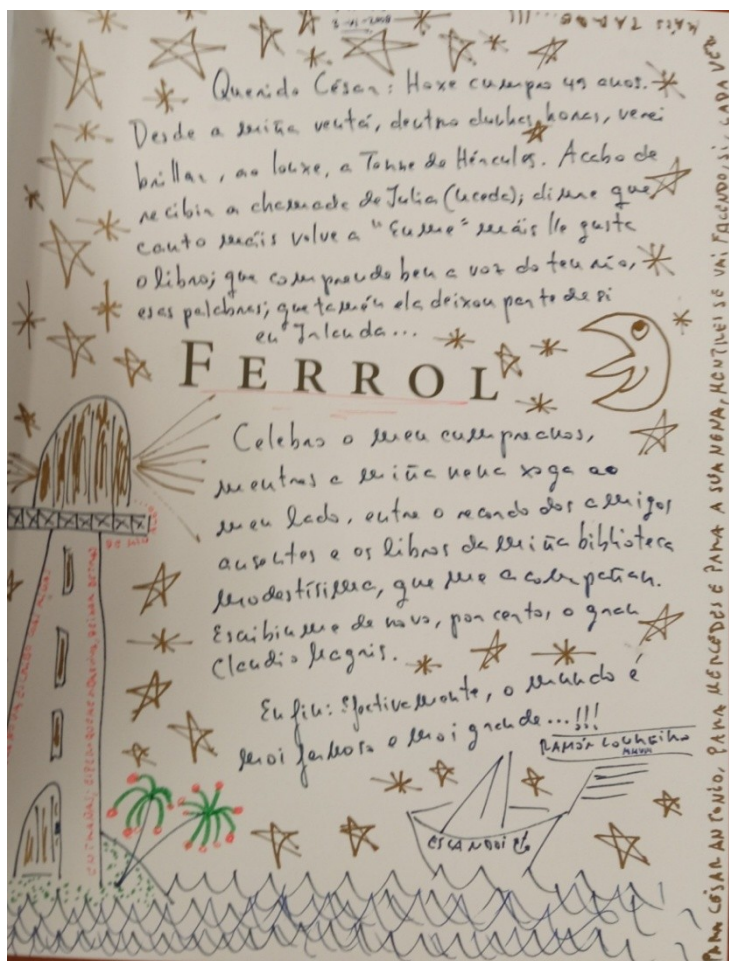 MÁIS TARDE...!!!
Querido César: Hoxe cumpro 49 anos.
Desde a miña ventá, dentro dunhas horas, verei
brillar, ao lonxe, a Torre de Hércules. Acabo de
recibir a chamada de Julia (Uceda); dime que
canto máis volve a "Eume" máis lle gusta
o libro; que comprende ben a voz do teu río,
esas palabras; que tamén ela deixou parte de si
en Irlanda...
FERROL
Celebro o meu cumpreanos,
mentras a miña nena xoga ao
meu lado, entre o recordo dos amigos
ausentes e os libros da miña biblioteca
modestísima, que me acompañan.
Escribiume de novo, por certo, o gran
Claudio Magris.
En fin: Efectivamente, o mundo é
moi fermoso e moi grande...!!!
RAMÓN LOUREIRO
ESCANDOI
PARA CÉSAR ANTONIO, PARA MERCEDES E PARA A SUA NENA, MENTRES SE VAI FACENDO, SI, CADA VEZ